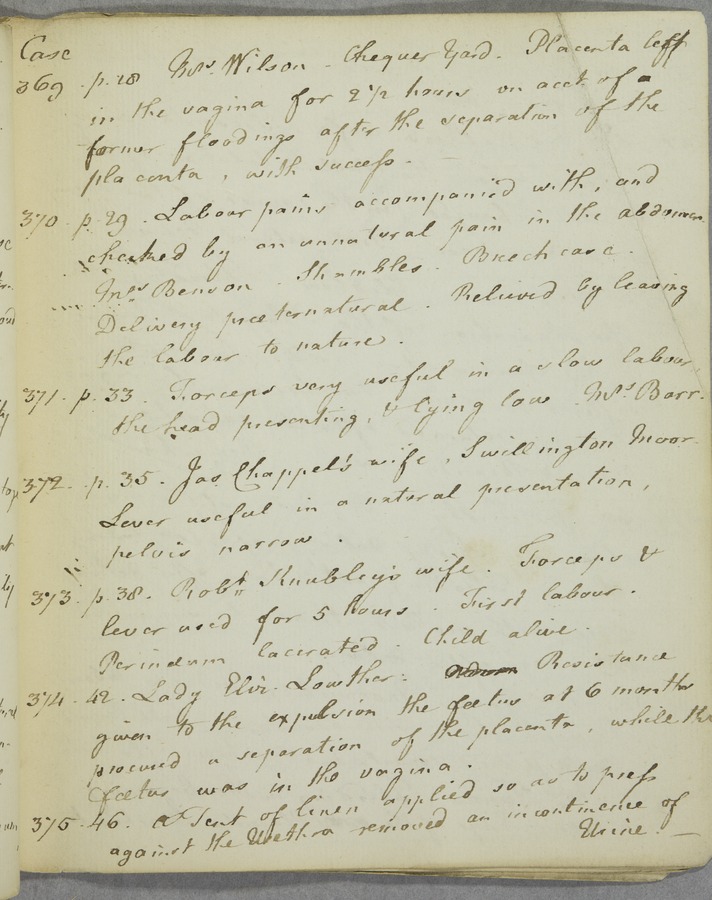 Case
369 p. 28 Mrs. Wilson - Chequer Yard. Placenta left
in the vagina for 2 1/2 hours on acct. of a
former floodings after the separation of the
placenta, with success.
370. p. 29. Labour pains accompanied with, and
checked by an unnatural pain in the abdomen.
Mrs Benson. Shambles. Breech case.
Delivery præternatural. Relieved by leaving
the labour to nature.
371. p. 33. Forceps very useful in a slow labour
the head presenting, & lying low Mrs. Barr.
372. p. 35. Jas Chappel's wife, Swillington Moor
Lever useful in a natural presentation,
pelvis narrow.
373. p. 38. Robt. Knubley's wife. Forceps &
lever used for 5 hours. First labour.
Perineum lacerated. Child alive.
374. 42. Lady Eliz. Lowther: Resistance
given to the expulsion the fœtus at 6 months
procured a separation of the placenta, while the
fœtus was in the vagina.
375. 46. A Tent of linen applied so as to press
against the Urethra removed an incontinence of
Urine. —